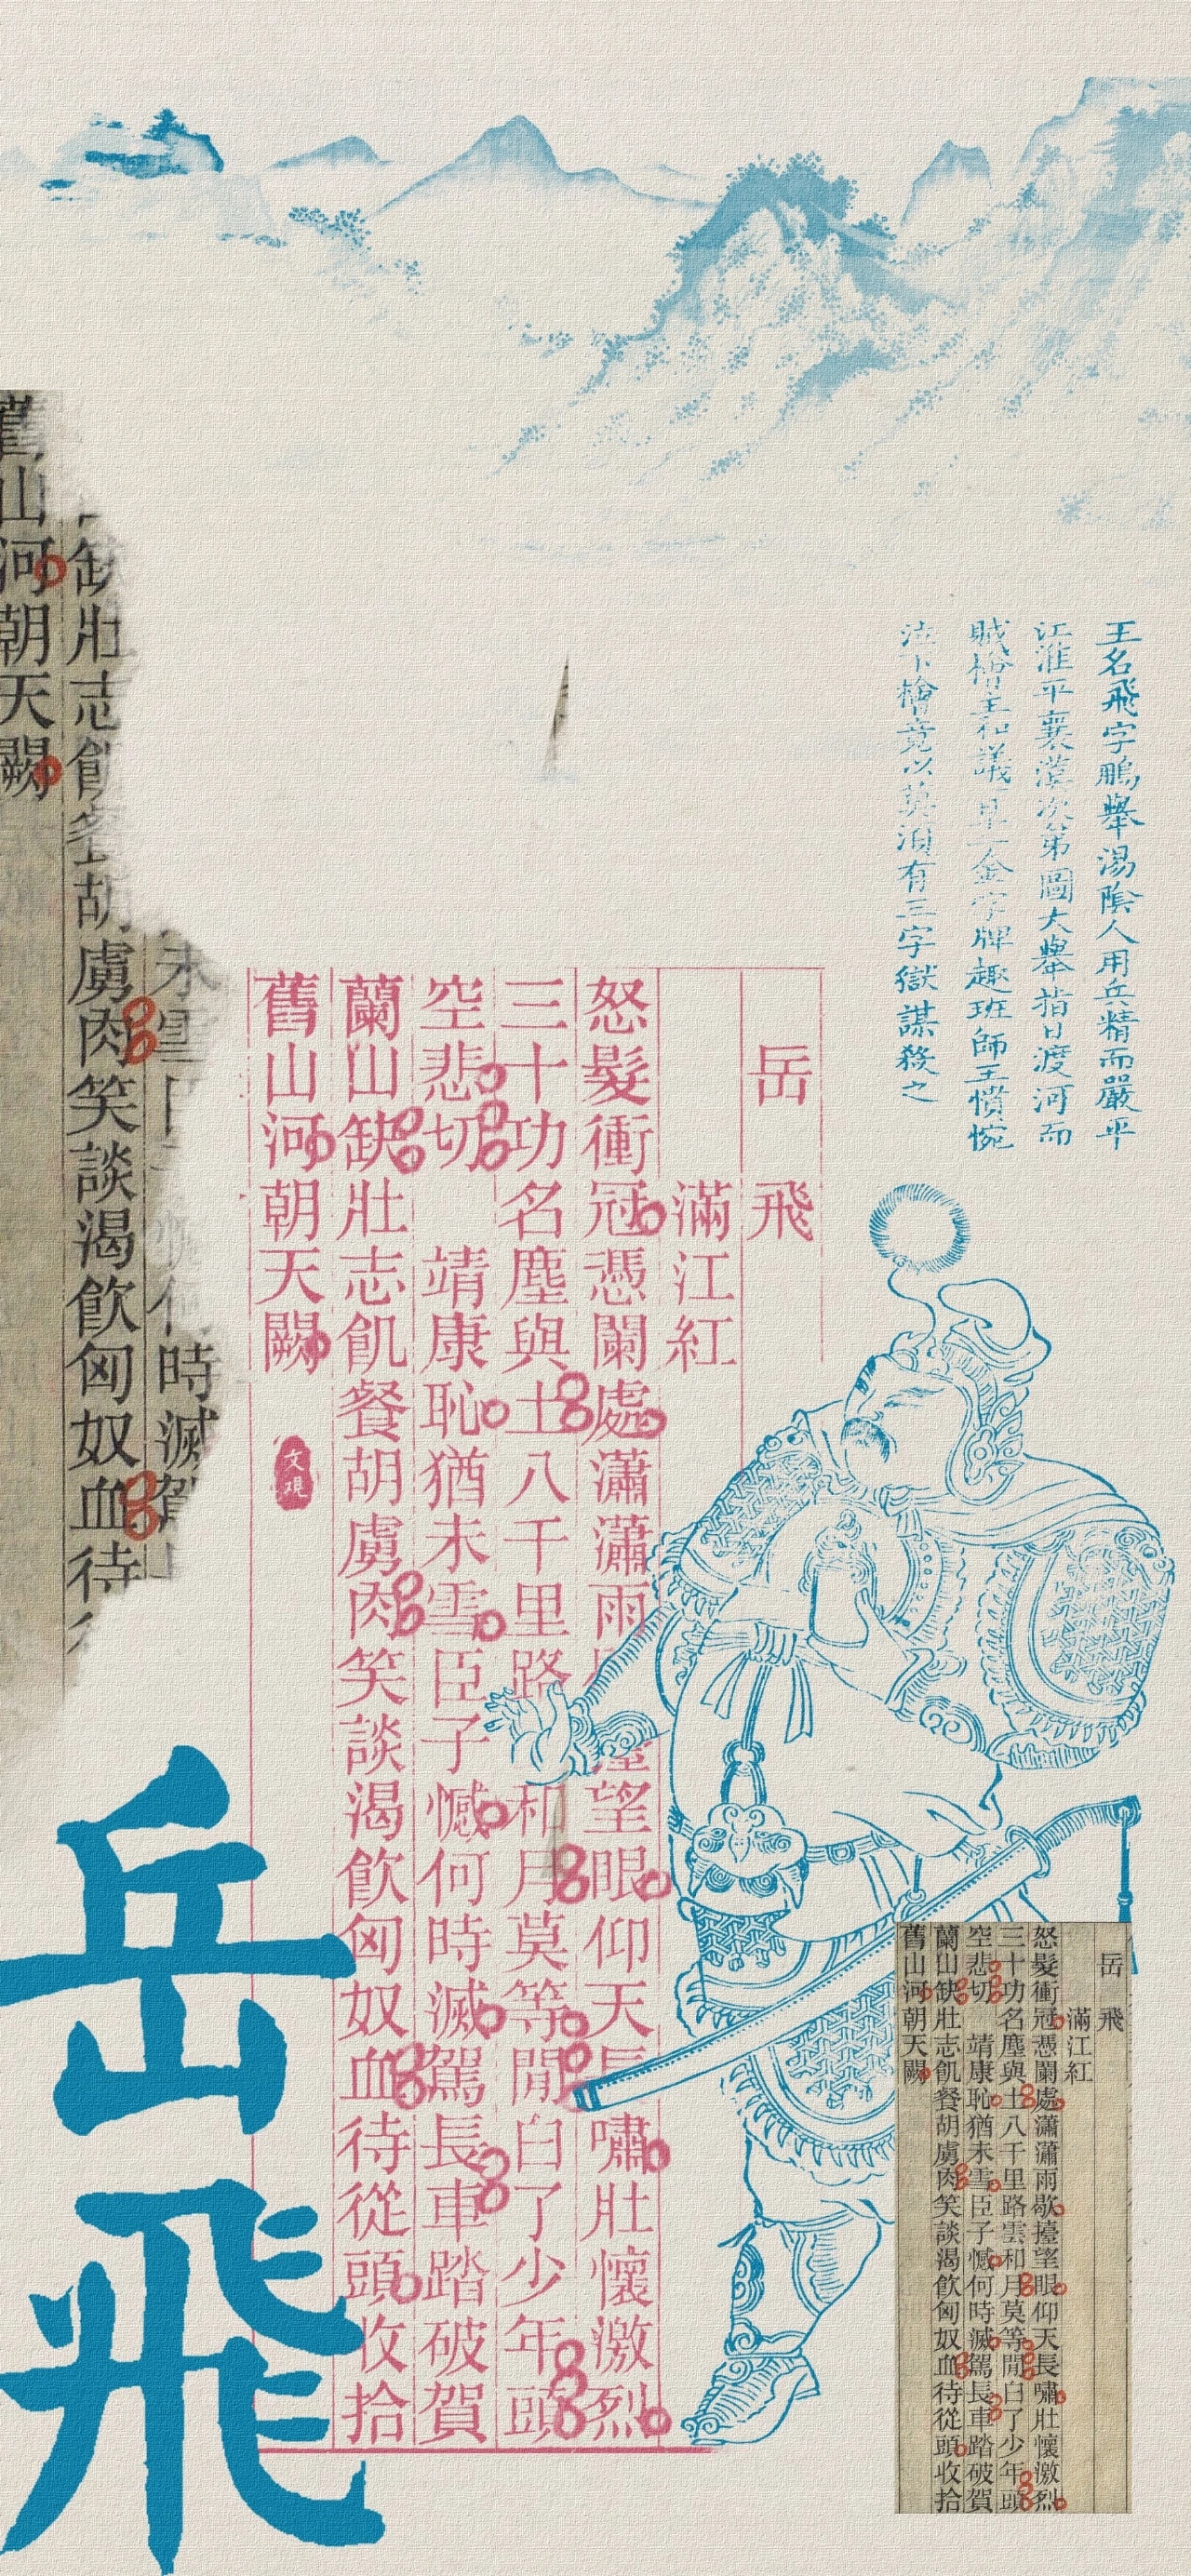 王名飛字鵬舉湯陰人用兵精而嚴平
江淮平襄漢次第圖大舉指日渡河而
賊檜主和議金字牌趣班師王憤惋
泣下檜竟以莫須有三字獄謀殺之
岳飛
滿江紅
怒髮衝冠憑闌處瀟瀟雨望眼仰天長嘯壯懷激烈
三十功名塵與土八千里路和月莫等閒白了少年頭
空悲切 靖康恥猶未雪臣子憾何時滅駕長車踏破賀
蘭山缺壯志飢餐胡虜肉笑談渴飲匈奴血待從頭收拾
舊山河朝天闕
未雪何時滅駕
缺壯志飢餐胡虜肉笑談渴飲匈奴血待
舊山河朝天闕
岳飛
岳飛
滿江紅
怒髮衝冠憑闌處瀟瀟雨歇擡望眼仰天長嘯壯懷激烈
三十功名塵與土八千里路雲和月莫等閒白了少年頭
空悲切 靖康恥猶未雪臣子憾何時滅駕長車踏破賀
蘭山缺壯志飢餐胡虜肉笑談渴飲匈奴血待從頭收拾
舊山河朝天闕